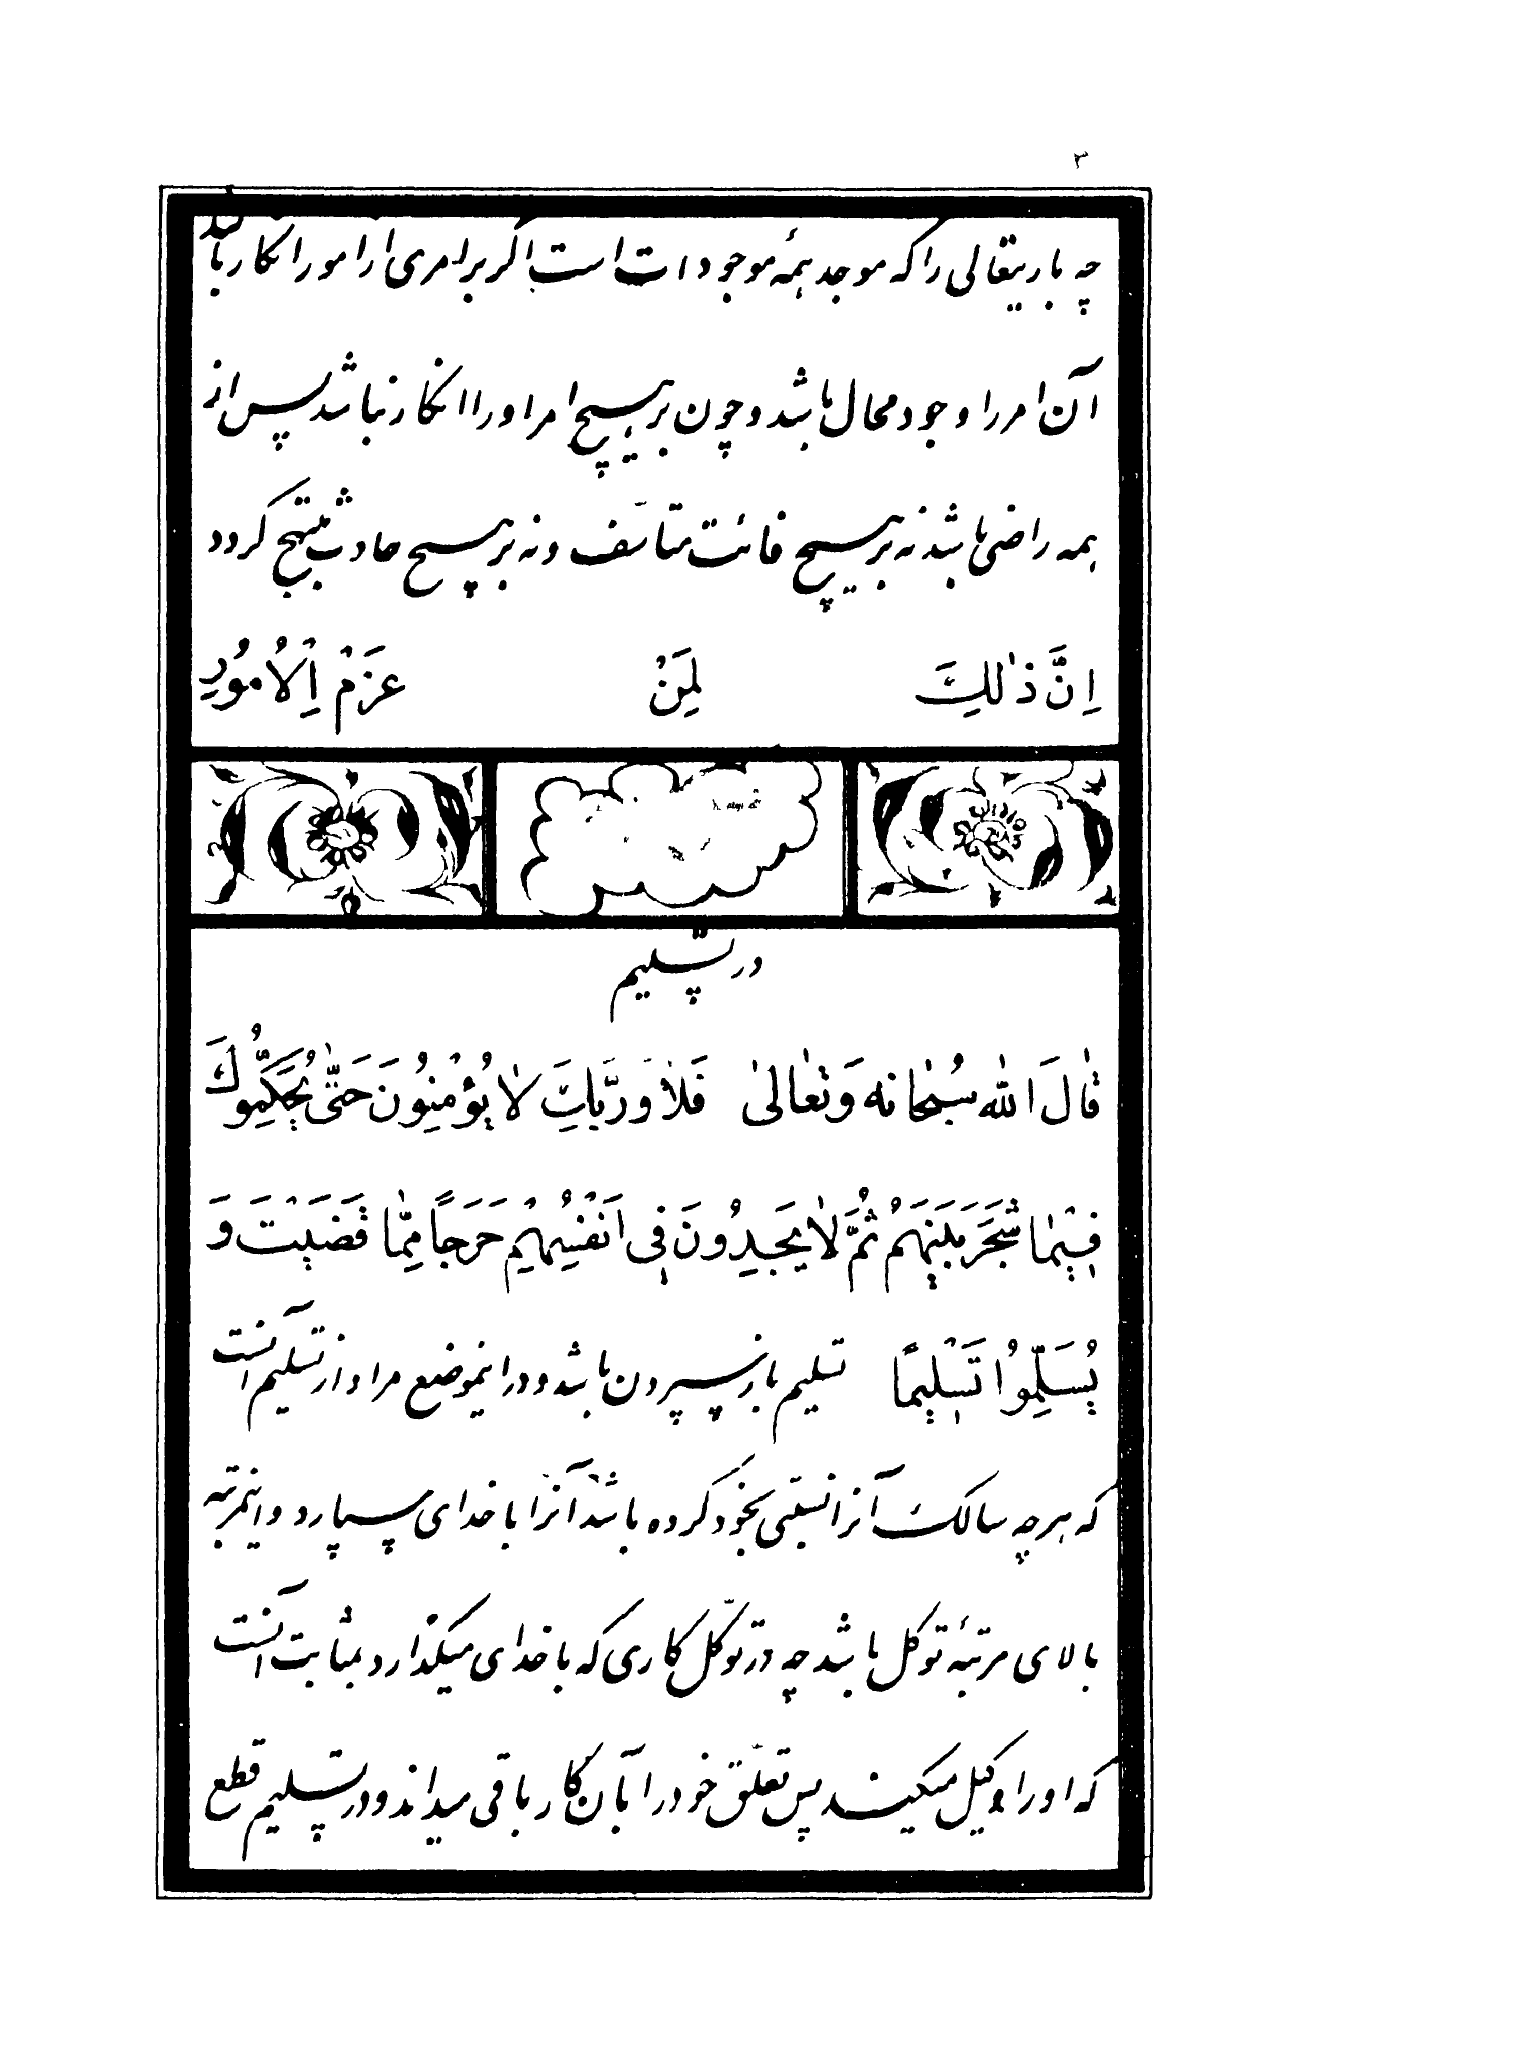 ۳
چه باریتعالی را که موجد همهٔ موجودات است اگر بر امری از امور انکار باشد
آن امر را وجود محال باشد و چون بر هیچ امر او را انکار نباشد پس از
همه راضی باشد نه بر هیچ فائت متأسّف و نه بر هیچ حادث مبتهج گردد
اِنَّ ذٰلِكَ لَمِنْ عَزْمِ اْلاُمُورِ
در تسلیم
قٰالَ اللّٰه سُبْحٰانه وَتَعٰالىٰ فَلاٰ وَ رَبِّكَ لاٰ يُؤْمِنُونَ حَتّٰى يُحَكِّمُوكَ
فِيْمٰا شَجَرَ بَيْنَهُمْ ثُمَّ لاٰ يَجِدُونَ فِى اَنْفُسِهِمْ حَرَجًا مِمّٰا قَضَيْتَ وَ
يُسَلِّمُوا تَسْلِيمًا تسلیم باز سپردن باشد و در اینموضع مراد از تسلیم آنست
که هر چه سالک آنرا نسبتی بخود کرده باشد آنرا با خدای سپارد و اینمرتبه
بالای مرتبهٔ توکل باشد چه در توکّل کاری که با خدای میگذارد بمثابت آنست
که او را وکیل میکند پس تعلّق خود را بآن کار باقی میداند و در تسلیم قطع